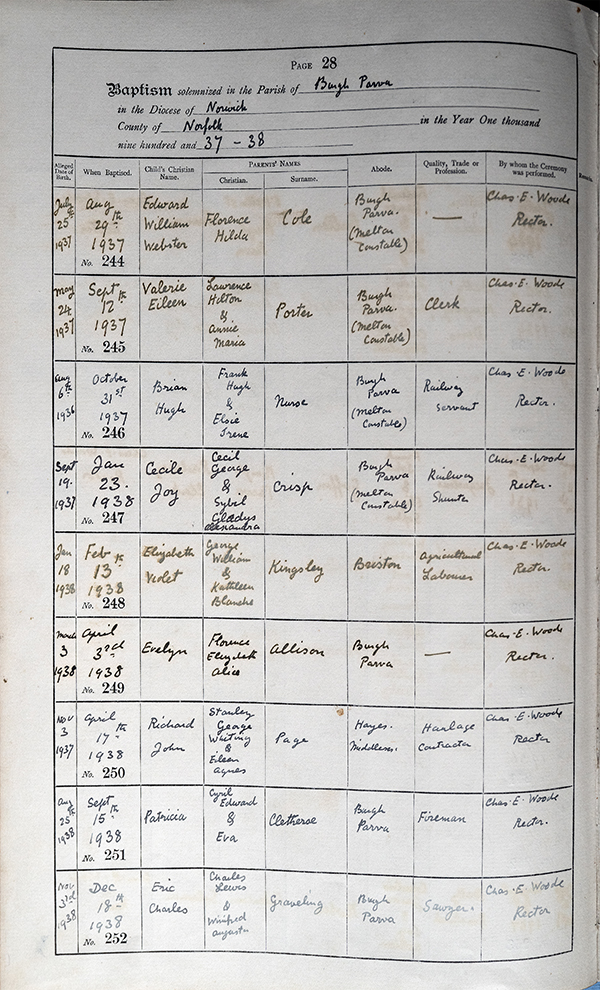 PAGE 28
Baptism solemnized in the Parish of Burgh Parva
in the Diocese of Norwich
County of Norfolk in the Year One thousand
nine hundred and 37 - 38
Alleged Date of Birth. When Baptised. Child's Christian Name. PARENTS' NAMES Christian. Surname. Abode. Quality, Trade or Profession. By whom the Ceremony was performed.
July 25th 1937 Aug 29th 1937 No. 244 Edward William Webster Florence Hilda Cole Burgh Parva. (Melton Constable) — Chas. E. Woode Rector.
May 24 1937 Sept 12th 1937 No. 245 Valerie Eileen Lawrence Hilton & Annie Maria Porter Burgh Parva. (Melton Constable) Clerk Chas. E. Woode Rector.
Aug 6th 1936 October 31st 1937 No. 246 Brian Hugh Frank Hugh & Elsie Irene Nurse Burgh Parva (Melton Constable) Railway Servant Chas. E. Woode Rector.
Sept 19. 1937 Jan 23. 1938 No. 247 Cecile Joy Cecil George & Sybil Gladys Alexandra Crisp Burgh Parva (Melton Constable) Railway Shunter Chas. E. Woode Rector.
Jan 18 1938 Feb 13th 1938 No. 248 Elizabeth Violet George William & Kathleen Blanche Kingsley Briston Agricultural Labourer Chas. E. Woode Rector.
March 3 1938 April 3rd 1938 No. 249 Evelyn Florence Elizabeth Alice Allison Burgh Parva — Chas. E. Woode Rector.
Nov 3 1937 April 17th 1938 No. 250 Richard John Stanley George Whiting & Eileen Agnes Page Hayes. Middlesex. Haulage Contractor Chas. E. Woode Rector
Aug 25th 1938 Sept 15th 1938 No. 251 Patricia Cyril Edward & Eva Burgh Parva Fireman Chas. E. Woode Rector.
Nov 3rd 1938 Dec 18th 1938 No. 252 Eric Charles Charles Lewis & Winifred Augusta Graveling Burgh Parva Sawyer. Chas. E. Woode Rector